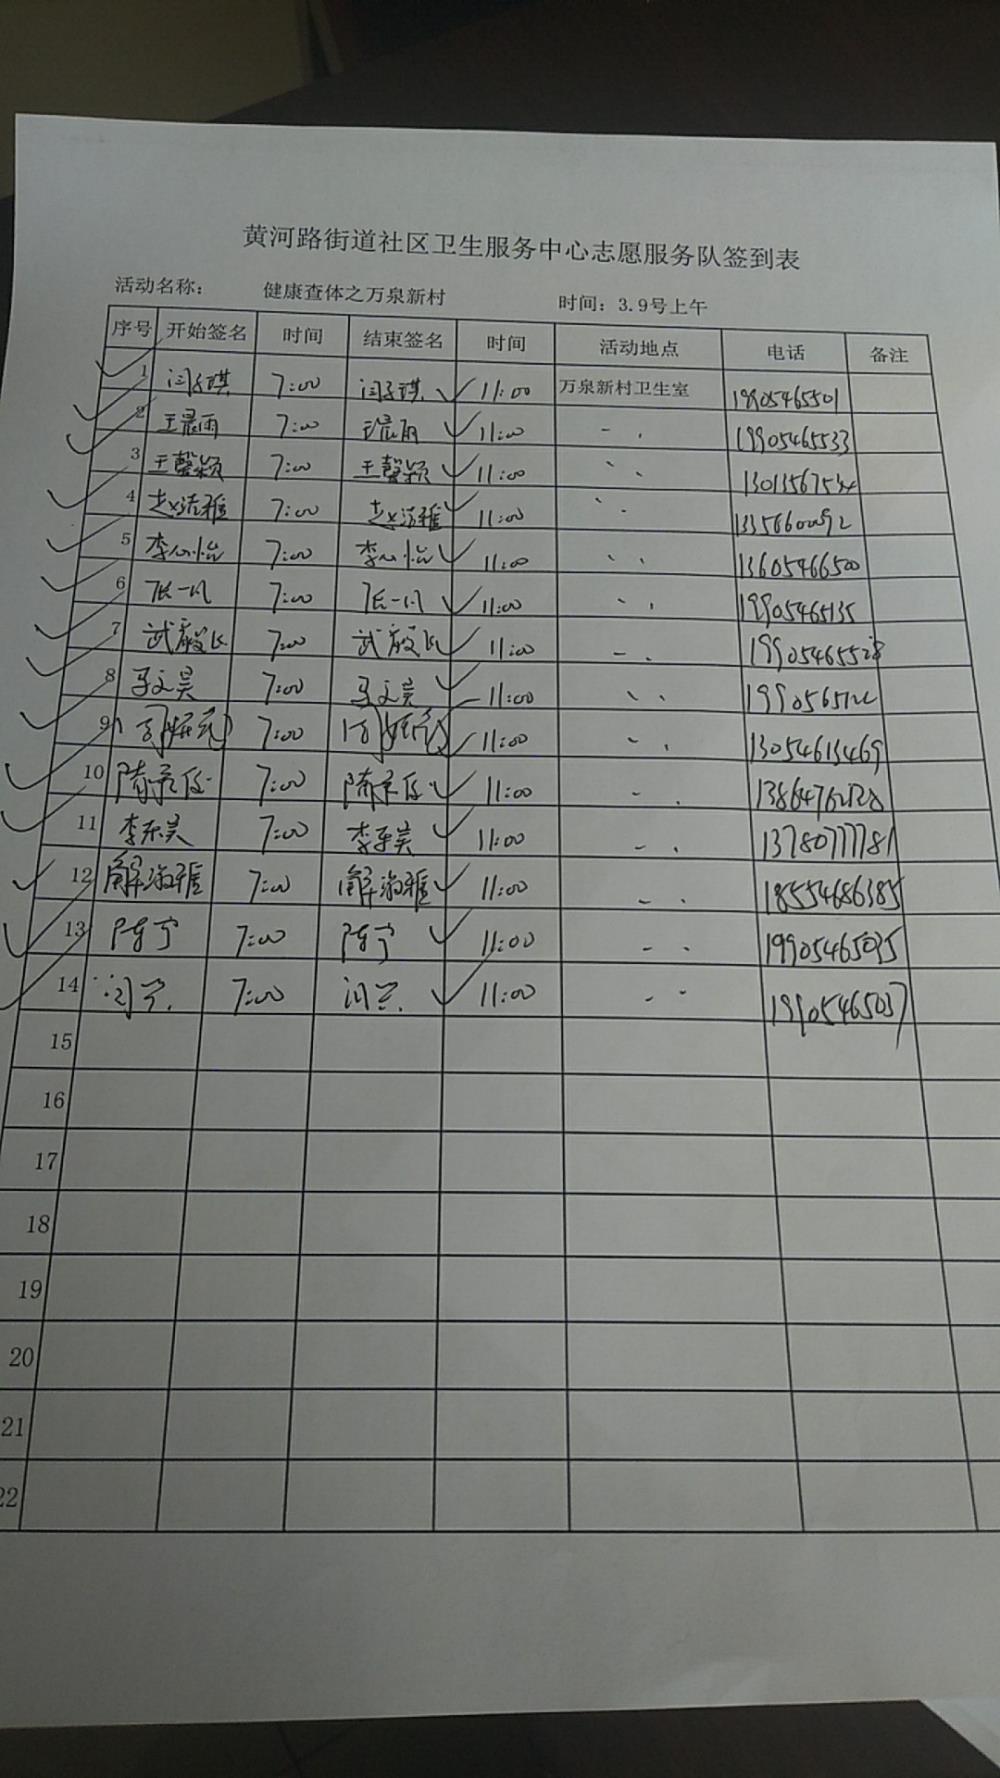 黄河路街道社区卫生服务中心志愿服务队签到表
活动名称： 健康查体之万泉新村 时间：3.9号上午
序号 开始签名 时间 结束签名 时间 活动地点 电话 备注
1 闫子琪 7:00 闫子琪 11:00 万泉新村卫生室 19905465501
2 王晨雨 7:00 王晨雨 11:00 19905465533
3 王馨颖 7:00 王馨颖 11:00
4 赵洁雅 7:00 赵洁雅 11:00
5 李心怡 7:00 李心怡 11:00 13605466500
6 张一凡 7:00 张一凡 11:00 19905465135
7 武毅 7:00 武毅 11:00 19905465528
8 马文昊 7:00 马文昊 11:00
9 7:00 11:00 13054613469
10 隋 7:00 隋 11:00
11 李东美 7:00 李东美 11:00 13780777781
12 解淑雅 7:00 解淑雅 11:00 18554686385
13 陈宁 7:00 陈宁 11:00 19905465035
14 闫 7:00 闫 11:00 19905465037
15
16
17
18
19
20
21
22